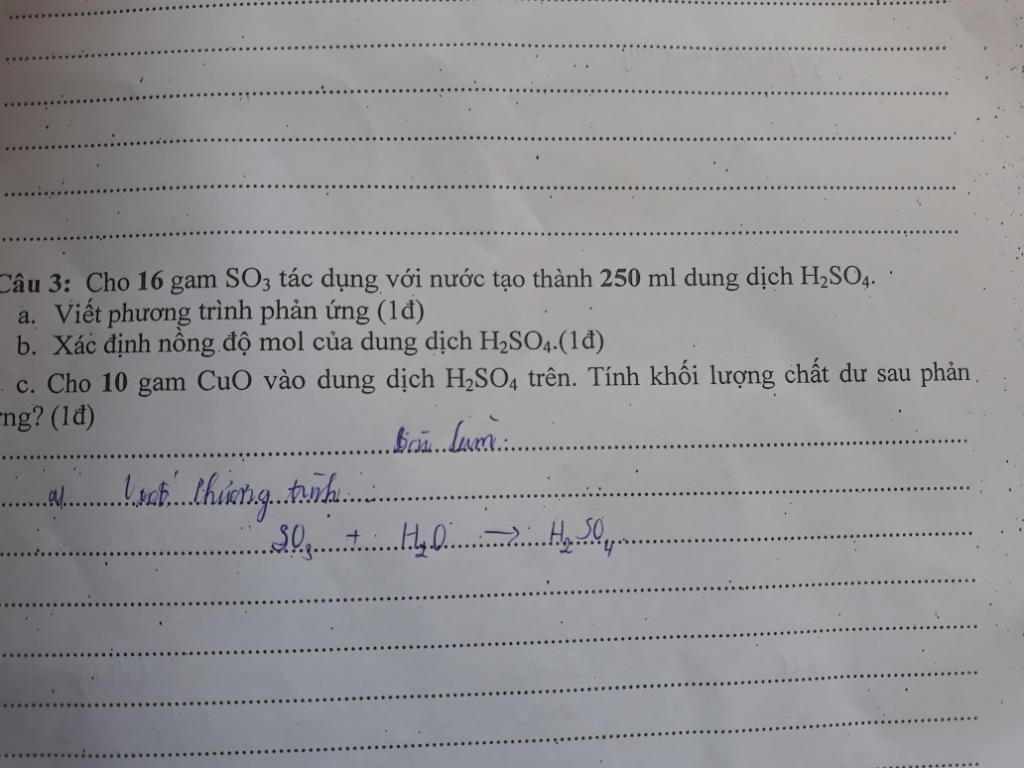 Câu 3: Cho 16 gam SO₃ tác dụng với nước tạo thành 250 ml dung dịch H₂SO₄.
a. Viết phương trình phản ứng (1đ)
b. Xác định nồng độ mol của dung dịch H₂SO₄.(1đ)
c. Cho 10 gam CuO vào dung dịch H₂SO₄ trên. Tính khối lượng chất dư sau phản
ng? (1đ)
Bài làm:
a) Viết phương trình :
SO₃ + H₂O → H₂SO₄